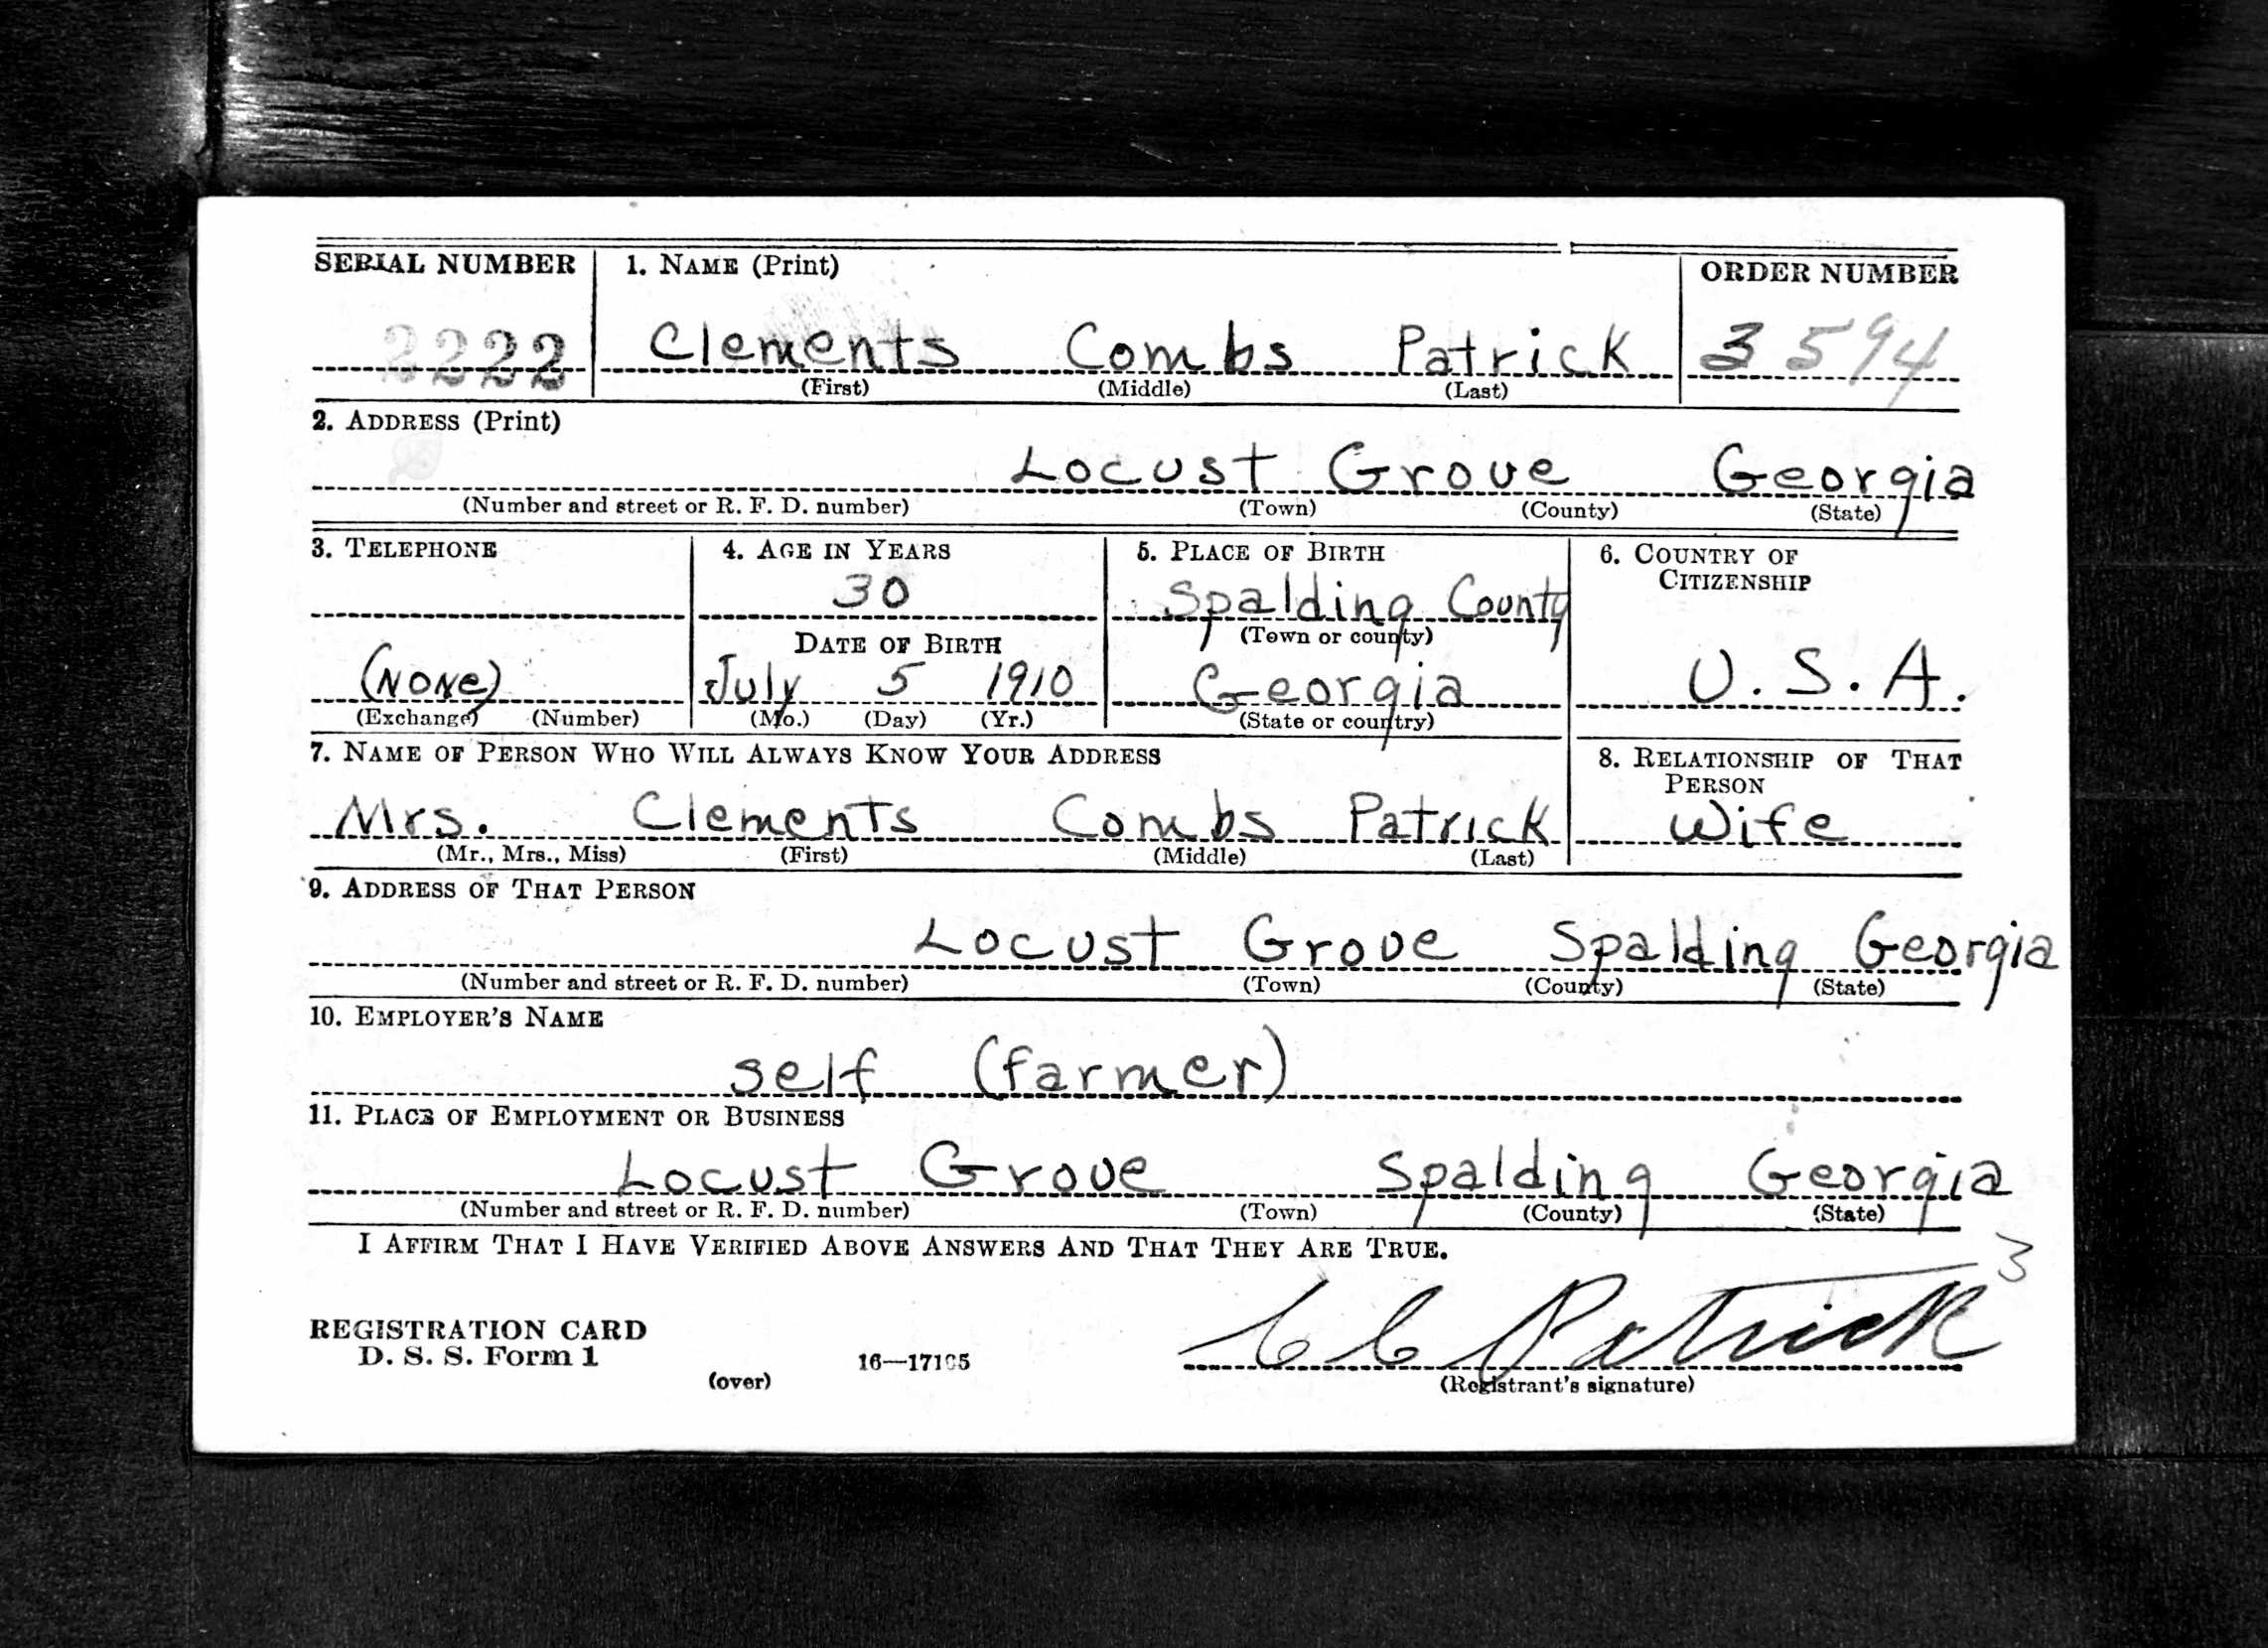 SERIAL NUMBER 1. NAME (Print) ORDER NUMBER
2222 Clements Combs Patrick 3594
(First) (Middle) (Last)
2. ADDRESS (Print)
Locust Grove Georgia
(Number and street or R. F. D. number) (Town) (County) (State)
3. TELEPHONE 4. AGE IN YEARS 5. PLACE OF BIRTH 6. COUNTRY OF
CITIZENSHIP
30 Spalding County
DATE OF BIRTH (Town or county)
(None) July 5 1910 Georgia U.S.A.
(Exchange) (Number) (Mo.) (Day) (Yr.) (State or country)
7. NAME OF PERSON WHO WILL ALWAYS KNOW YOUR ADDRESS 8. RELATIONSHIP OF THAT
PERSON
Mrs. Clements Combs Patrick Wife
(Mr., Mrs., Miss) (First) (Middle) (Last)
9. ADDRESS OF THAT PERSON
Locust Grove Spalding Georgia
(Number and street or R. F. D. number) (Town) (County) (State)
10. EMPLOYER'S NAME
self (farmer)
11. PLACE OF EMPLOYMENT OR BUSINESS
Locust Grove Spalding Georgia
(Number and street or R. F. D. number) (Town) (County) (State)
I AFFIRM THAT I HAVE VERIFIED ABOVE ANSWERS AND THAT THEY ARE TRUE.
3
REGISTRATION CARD C C Patrick
D. S. S. Form 1 16—17105
(over) (Registrant's signature)